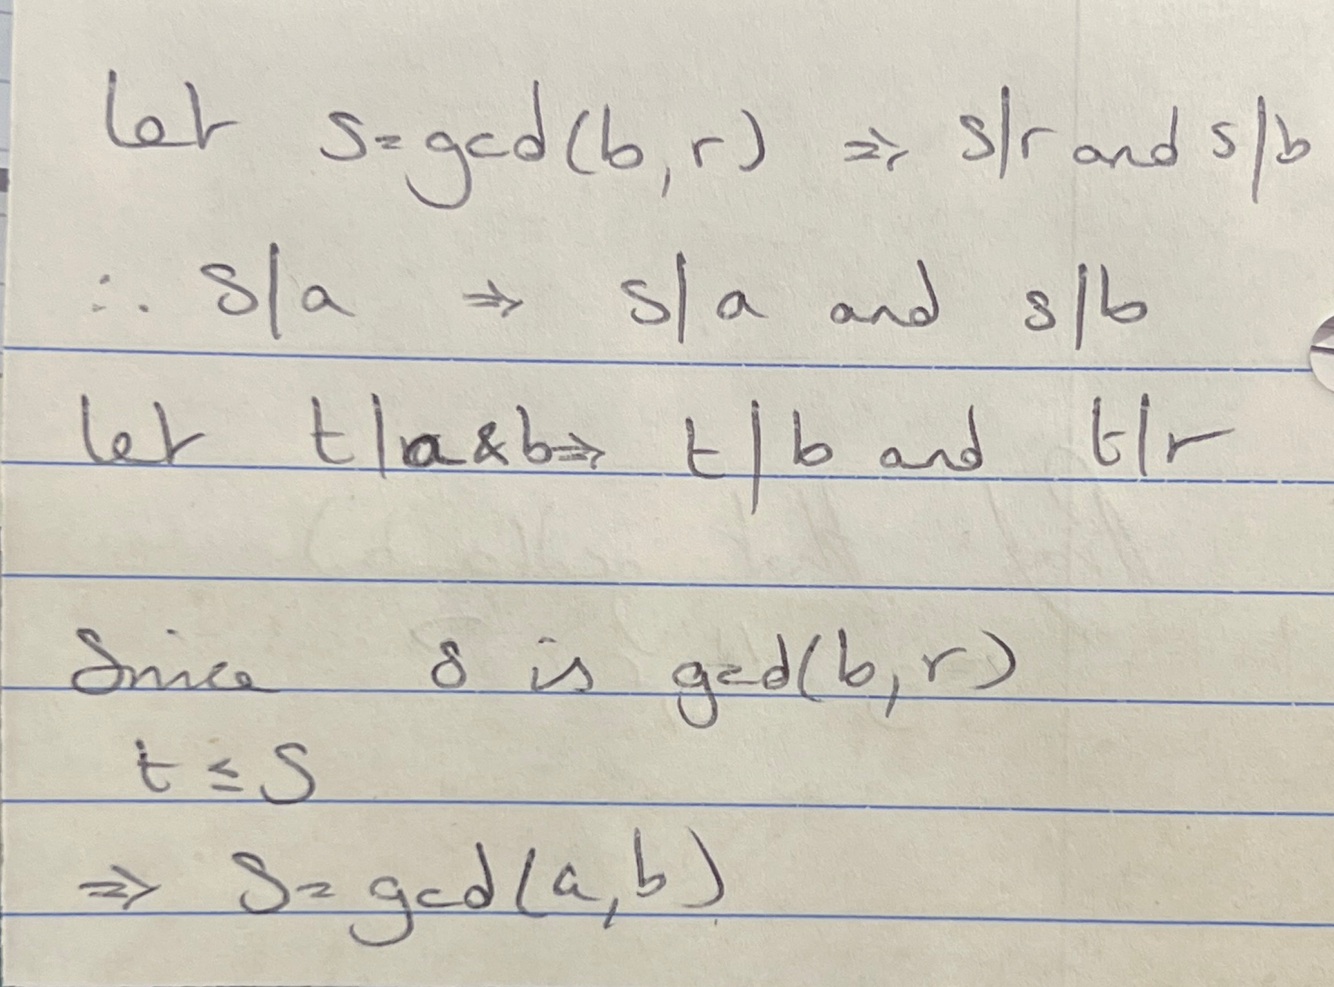 Let s=gcd(b,r) ⇒ s|r and s|b
∴ s|a ⇒ s|a and s|b
Let t|a&b⇒ t|b and t|r
Since s is gcd(b,r)
t≤s
⇒ s=gcd(a,b)